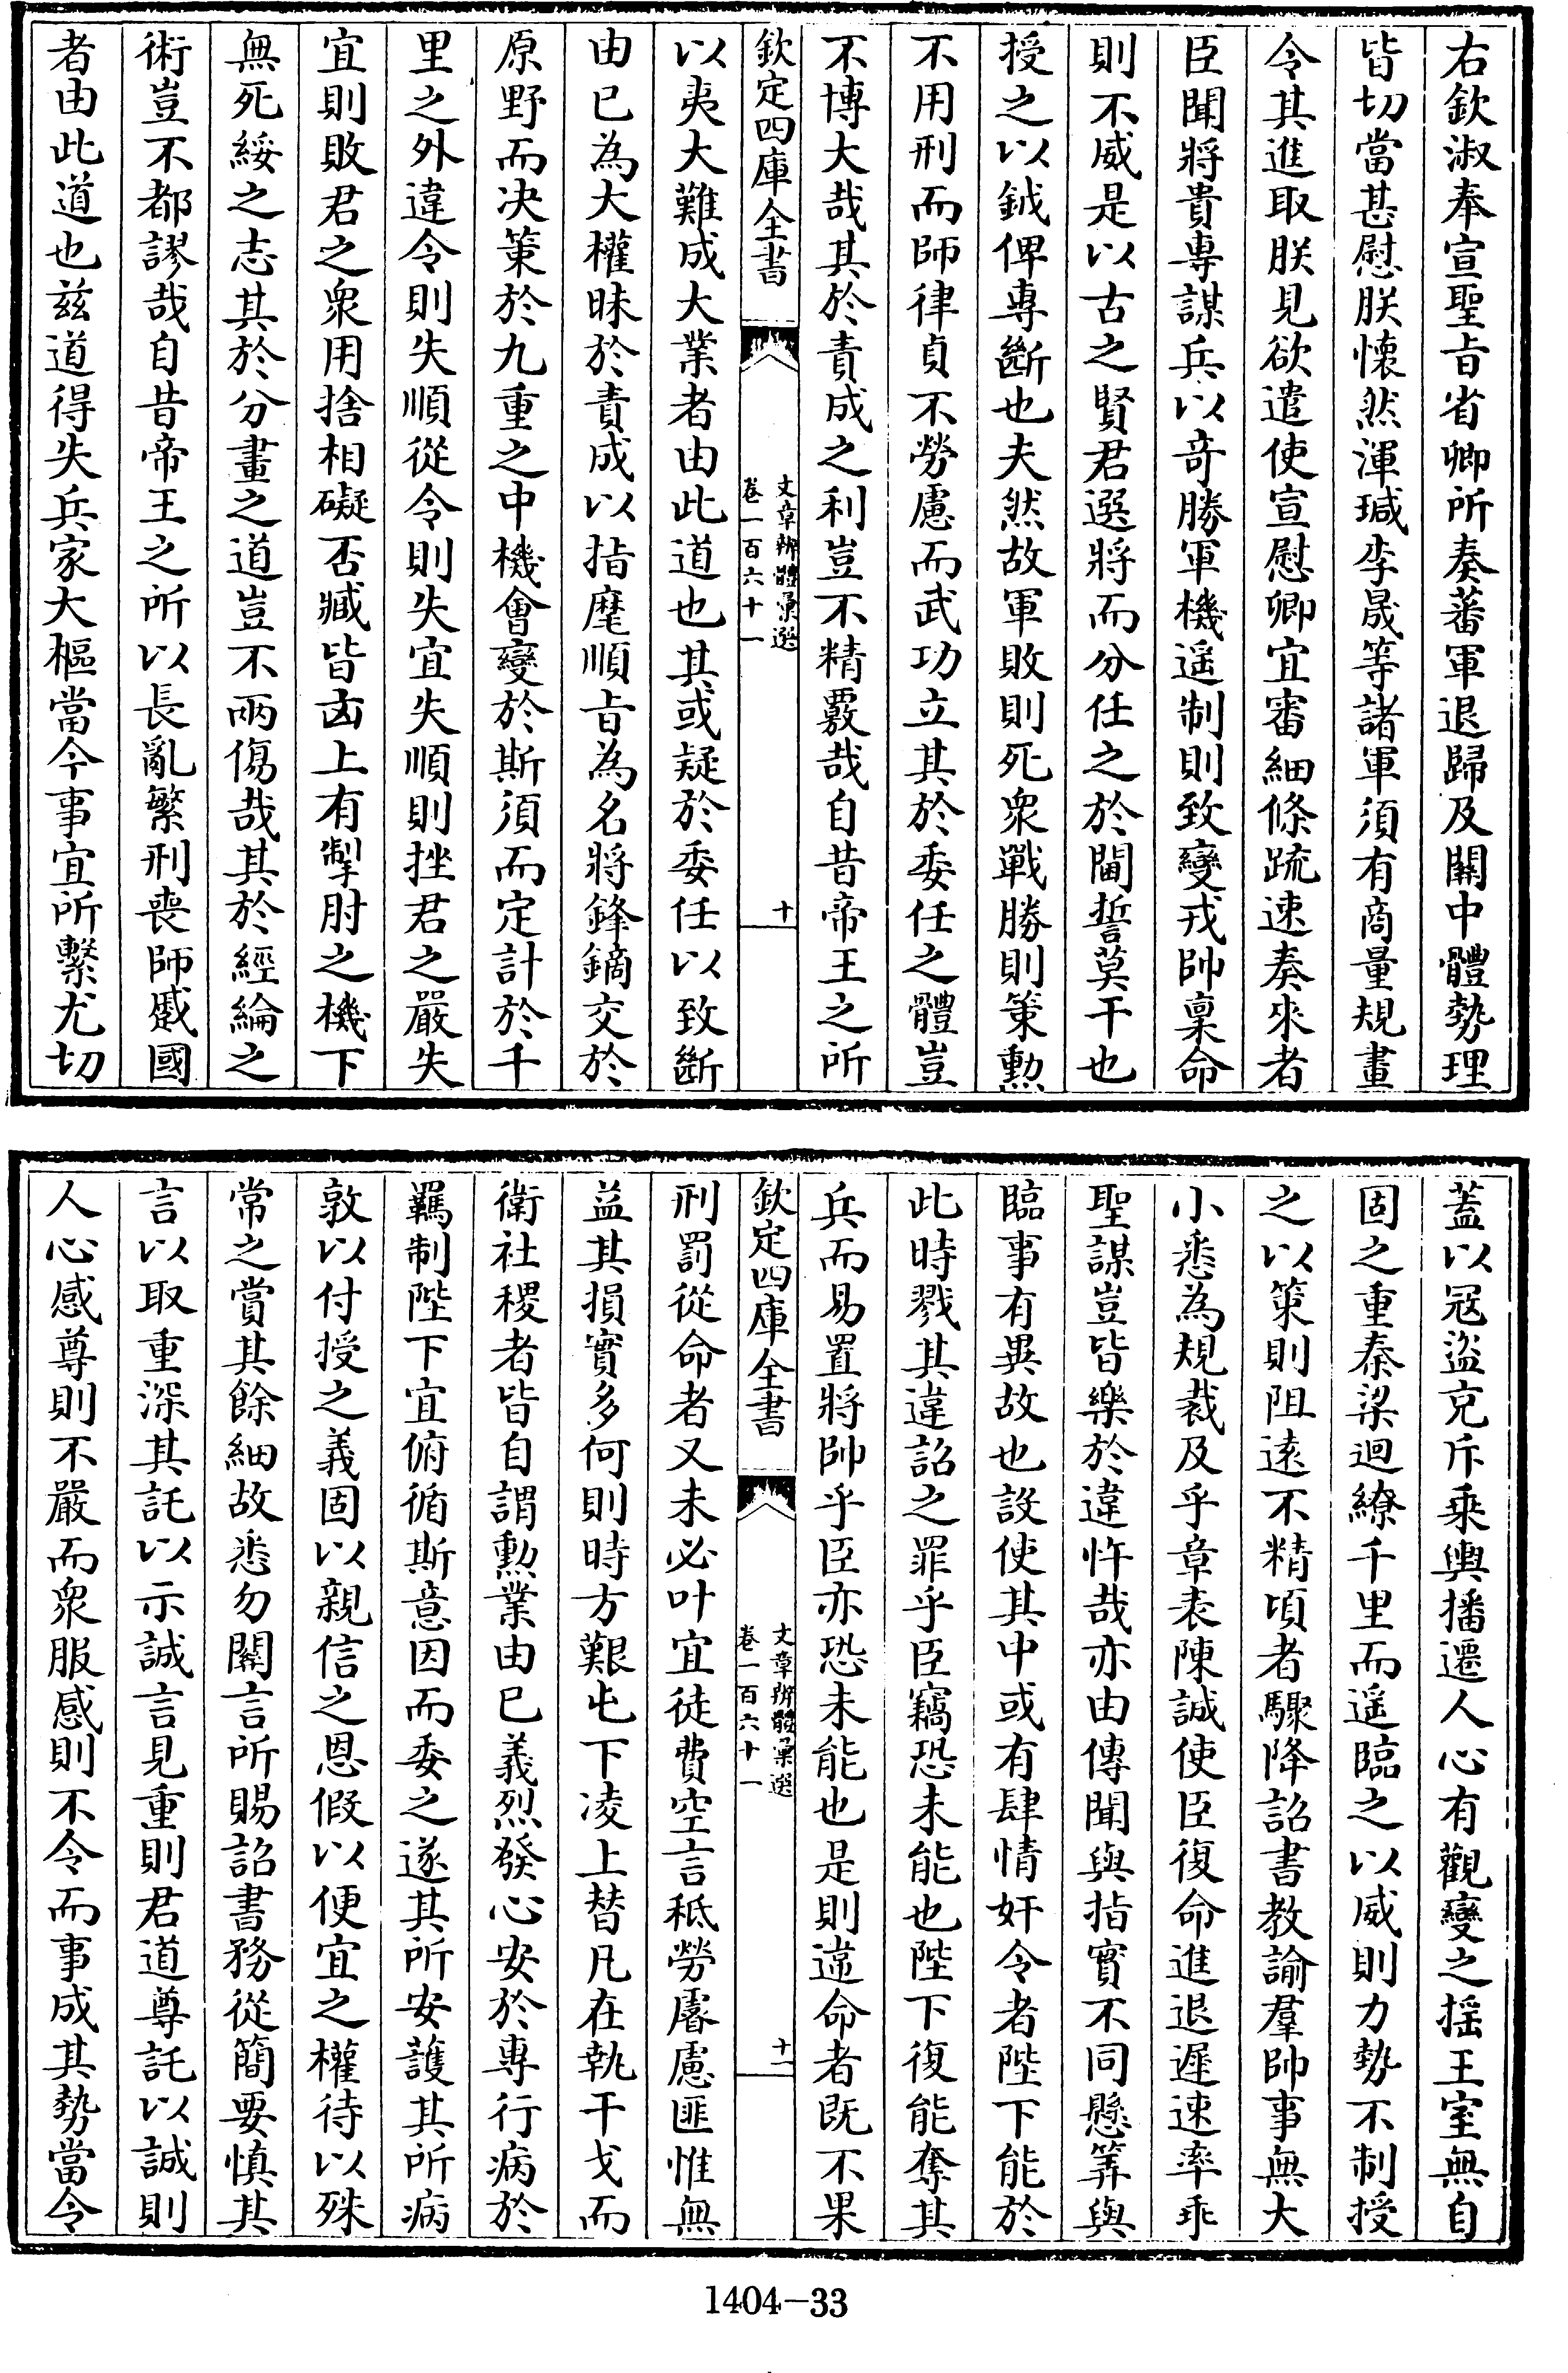 右欽淑奉宣聖旨省卿所奏蕃軍退歸及關中體勢理
皆切當甚慰朕懷然渾瑊李晟等諸軍須有商量規畫
令其進取朕見欲遣使宣慰卿宜審細條疏速奏來者
臣聞將貴專謀兵以竒勝軍機遥制則致變戎帥稟命
則不威是以古之賢君選將而分任之於閫誓莫干也
授之以鉞俾專斷也夫然故軍敗則死衆戰勝則策勲
不用刑而師律貞不勞慮而武功立其於委任之體豈
不博大哉其於責成之利豈不精覈哉自昔帝王之所
欽定四庫全書
文章辨體彙選
卷一百六十一
十
以夷大難成大業者由此道也其或疑於委任以致斷
由已為大權昧於責成以指麾順旨為名將鋒鏑交於
原野而决策於九重之中機會變於斯須而定計於千
里之外違令則失順從令則失宜失順則挫君之嚴失
宜則敗君之衆用捨相礙否臧皆凶上有掣肘之機下
無死綏之志其於分畫之道豈不兩傷哉其於經綸之
術豈不都謬哉自昔帝王之所以長亂繁刑喪師蹙國
者由此道也兹道得失兵家大樞當今事宜所繫尤切
蓋以冦盜充斥乗輿播遷人心有觀變之揺王室無自
固之重秦梁迴繚千里而遥臨之以威則力勢不制授
之以策則阻逺不精頃者驟降詔書教諭羣帥事無大
小悉為規裁及乎章表陳誠使臣復命進退遲速率乖
聖謀豈皆樂於違忤哉亦由傳聞與指實不同懸筭與
臨事有異故也設使其中或有肆情奸令者陛下能於
此時戮其違詔之罪乎臣竊恐未能也陛下復能奪其
兵而易置將帥乎臣亦恐未能也是則違命者既不果
欽定四庫全書
文章辨體彙選
卷一百六十一
十一
刑罰從命者又未必叶宜徒費空言秪勞睿慮匪惟無
益其損實多何則時方艱屯下凌上替凡在執干戈而
衛社稷者皆自謂勲業由已義烈發心安於專行病於
羈制陛下宜俯循斯意因而委之遂其所安護其所病
敦以付授之義固以親信之恩假以便宜之權待以殊
常之賞其餘細故悉勿闗言所賜詔書務從簡要慎其
言以取重深其託以示誠言見重則君道尊託以誠則
人心感尊則不嚴而衆服感則不令而事成其勢當令
1404-33